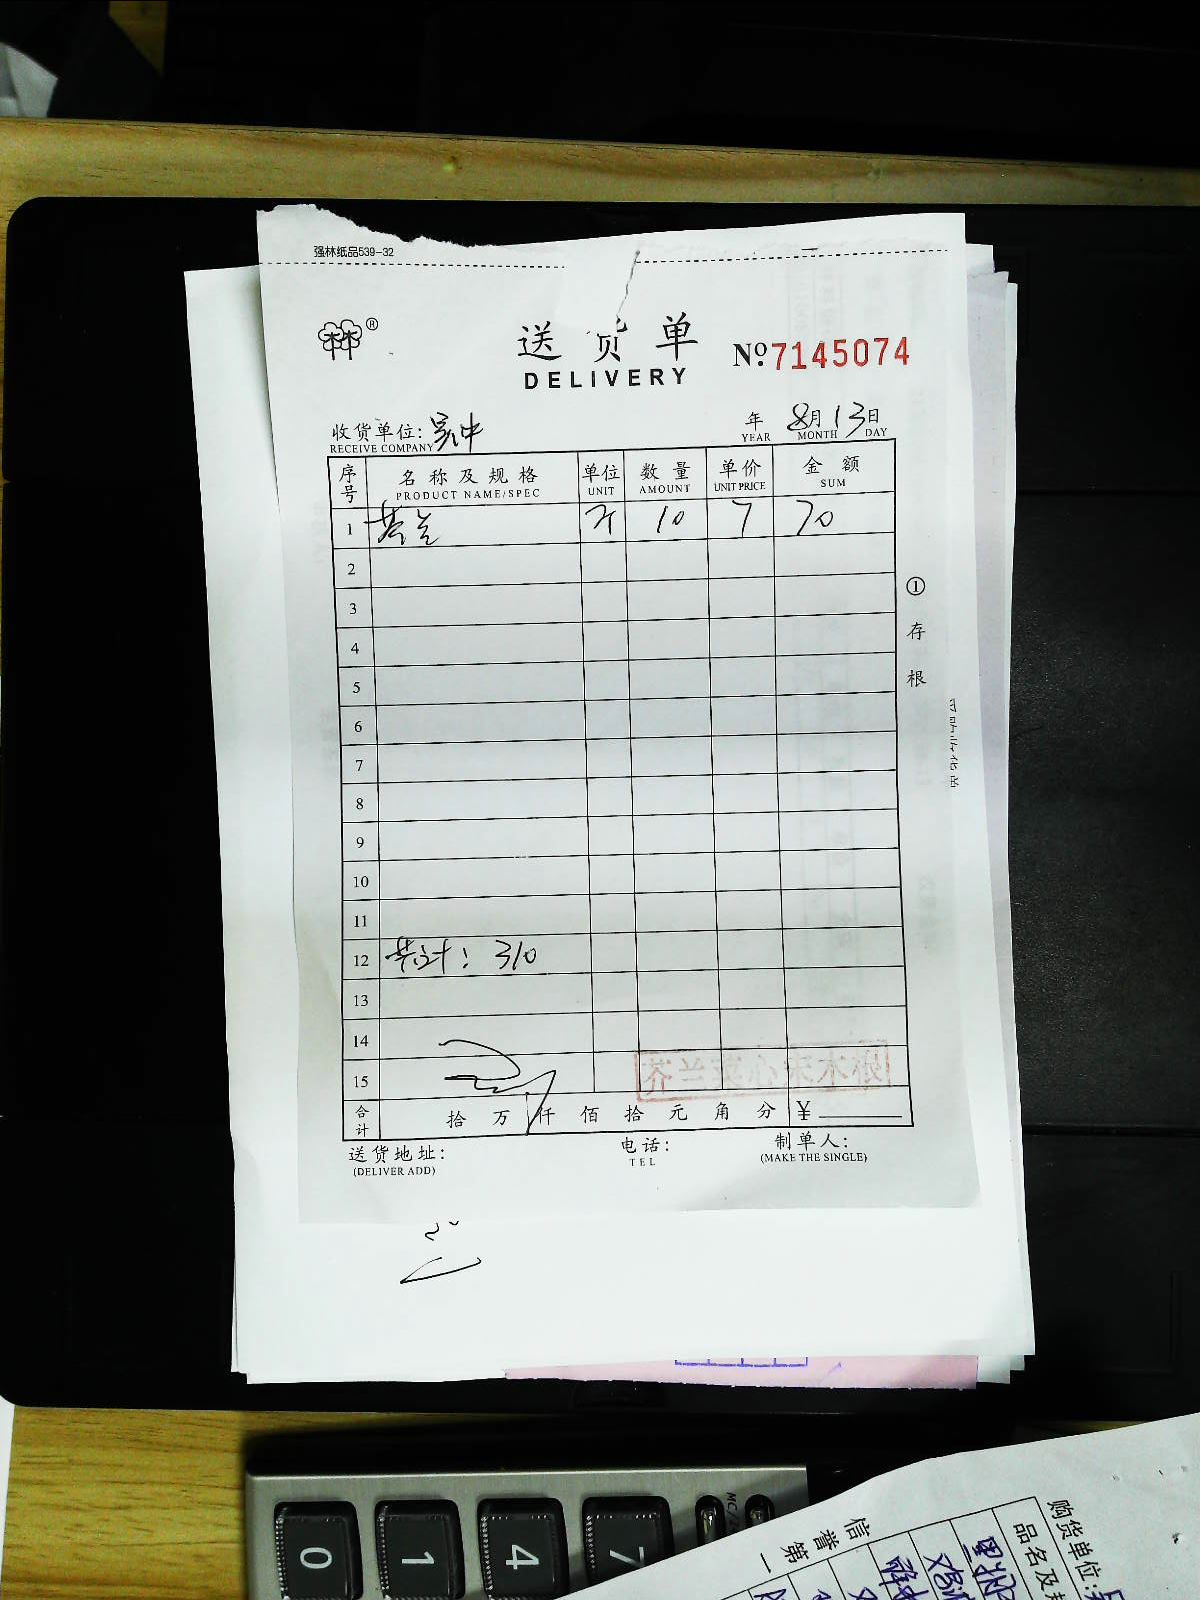 强林纸品539-32
®
送货单
DELIVERY
№7145074
收货单位:
RECEIVE COMPANY
年 8月13日
YEAR MONTH DAY
序号 名称及规格 单位 数量 单价 金额
PRODUCT NAME/SPEC UNIT AMOUNT UNIT PRICE SUM
1 芥兰 斤 10 7 70
2
3
4
5
6
7
8
9
10
11
12 共计: 310
13
14
15
芥兰菜心
合计 拾 万 仟 佰 拾 元 角 分 ¥
送货地址: 电话: 制单人:
(DELIVER ADD) TEL (MAKE THE SINGLE)
① 存根
0 1 4 7
购货单位:
品名及规
信誉第一